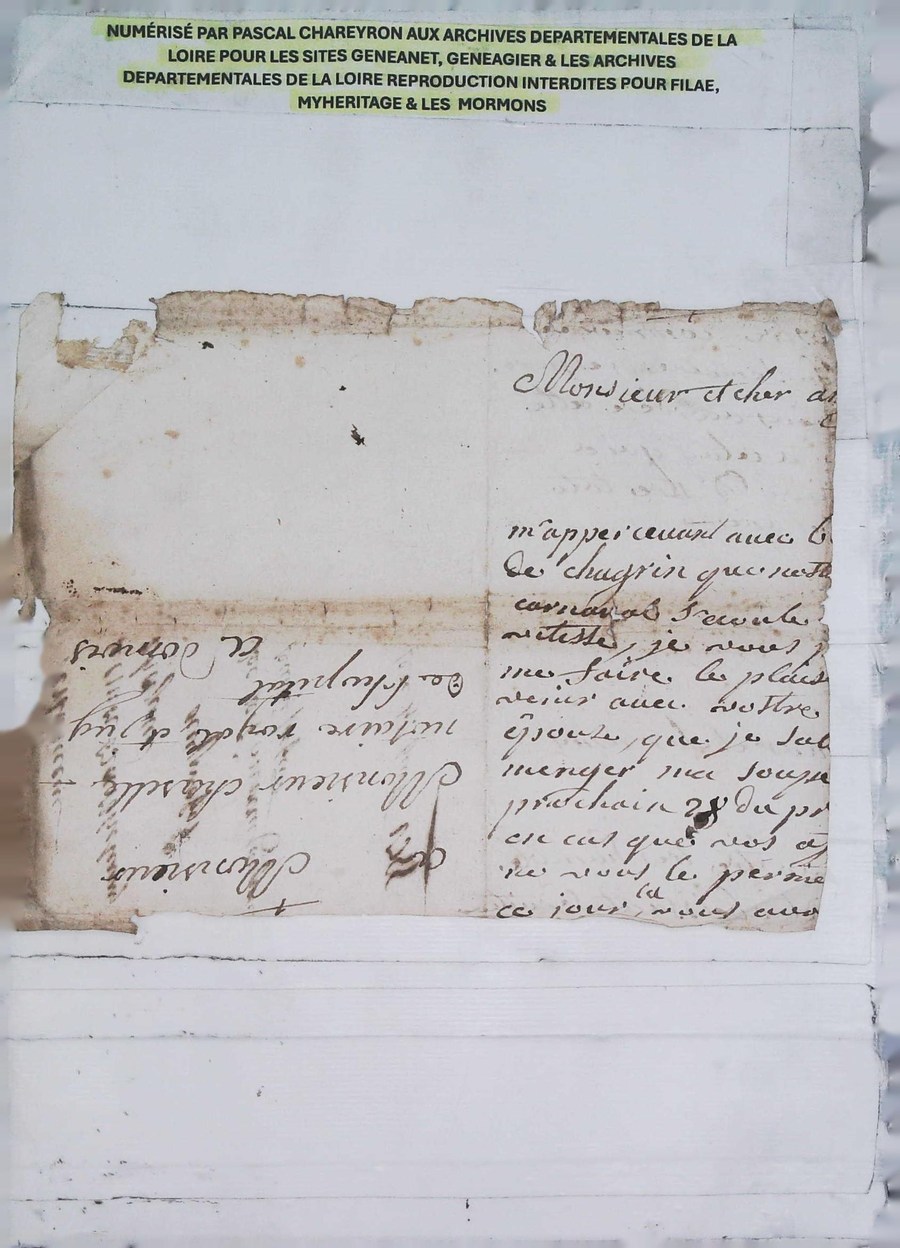 NUMÉRISÉ PAR PASCAL CHAREYRON AUX ARCHIVES DEPARTEMENTALES DE LA
LOIRE POUR LES SITES GENEANET, GENEAGIER & LES ARCHIVES
DEPARTEMENTALES DE LA LOIRE REPRODUCTION INTERDITES POUR FILAE,
MYHERITAGE & LES MORMONS
Monsieur et cher
m'appercevant avec
de chagrin que
carnaval s'ecoule
vitesse, je vous
me faire le plais
venir avec vostre
epouse, que je
menger ma soupe
prochain 28 du
en cas que vos
ne vous le perme
ce jour la vous
Monsieur
Monsieur
notaire royal et
De l'hopital
A